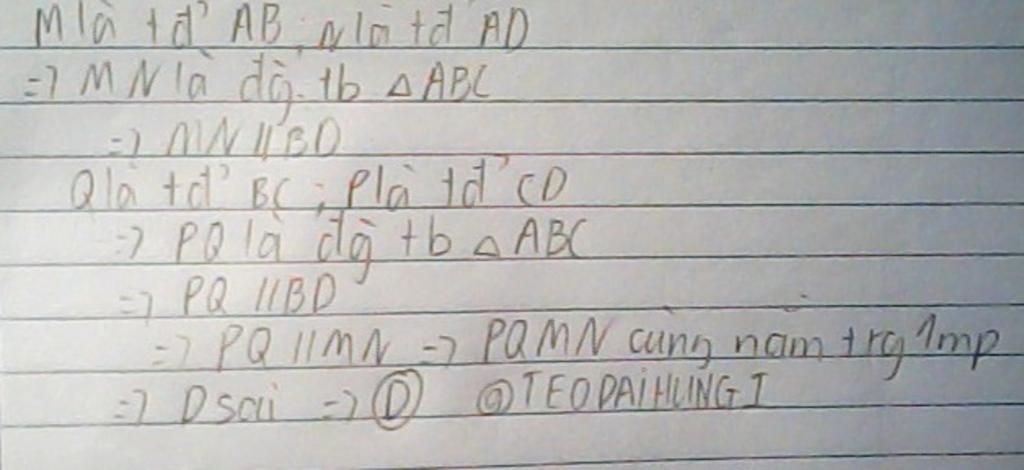 M là tđ' AB, N là tđ AD
=> MN là đg̀. tb △ABC
=> MN // BD
Q là tđ' BC; P là tđ' CD
=> PQ là đg̀ tb △ABC
=> PQ // BD
=> PQ // MN => PQMN cùng nằm trg 1mp
=> D sai => Ⓓ @TEODAIHUNGI